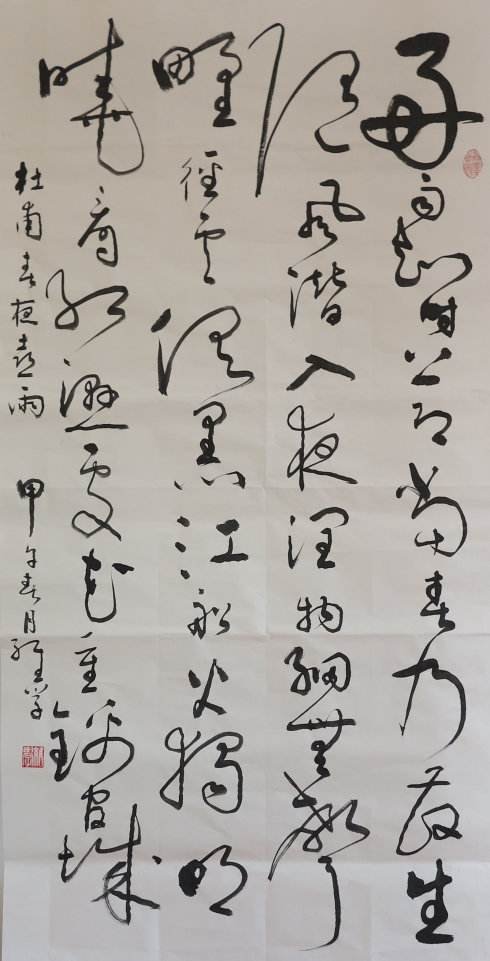 好雨知时节當春乃發生
随風潜入夜润物細無聲
野徑云俱黑江船火獨明
曉看紅濕處花重錦官城
杜甫春夜喜雨 甲午春月